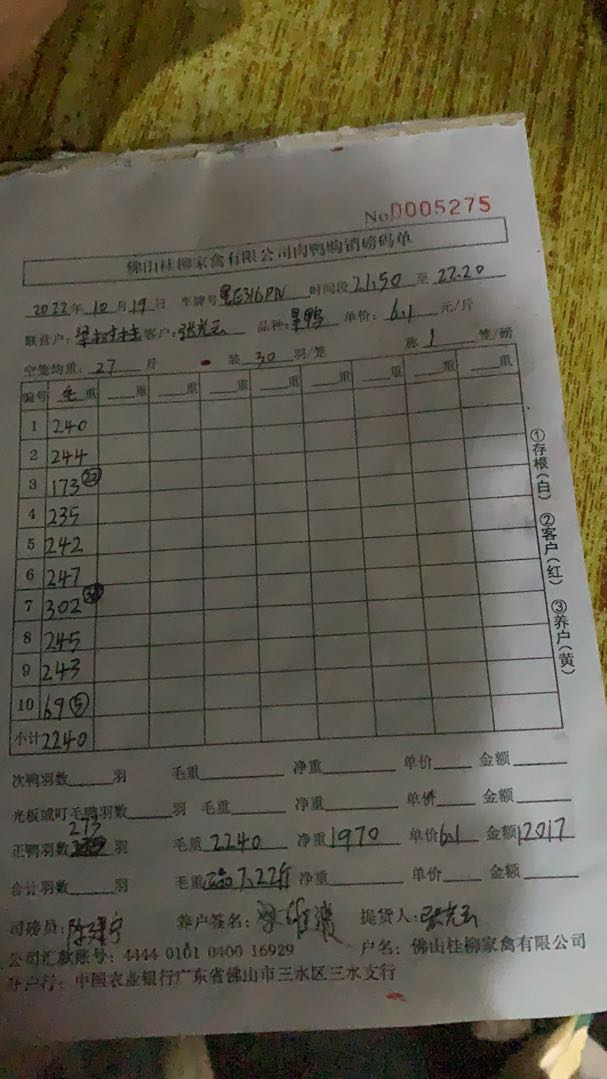 No 0005275
佛山桂柳家禽有限公司肉鸭购销磅码单
2022年10月19日 车牌号 E316PN 时间段 21.50 至 22.20
联营户: 客户: 品种: 鸭 单价: 6.1 元/斤
空笼均重: 27 斤 装 30 羽/笼 称 1 笼/磅
编号 毛重 重 重 重 重 重 重 重 重
1 240
2 244
3 173 22
4 235
5 242
6 247
7 302
8 245
9 243
10 69 5
小计 2240
次鸭羽数 羽 毛重 净重 单价 金额
光板或叮毛鸭羽数 羽 毛重 净重 单价 金额
273
正鸭羽数 羽 毛重 2240 净重 1970 单价 6.1 金额 12017
合计羽数 羽 毛重 7.22斤 净重 单价 金额
司磅员: 养户签名: 提货人:
公司汇款账号: 4444 0101 0400 16929 户名: 佛山桂柳家禽有限公司
开户行: 中国农业银行广东省佛山市三水区三水支行
①存根(白) ②客户(红) ③养户(黄)